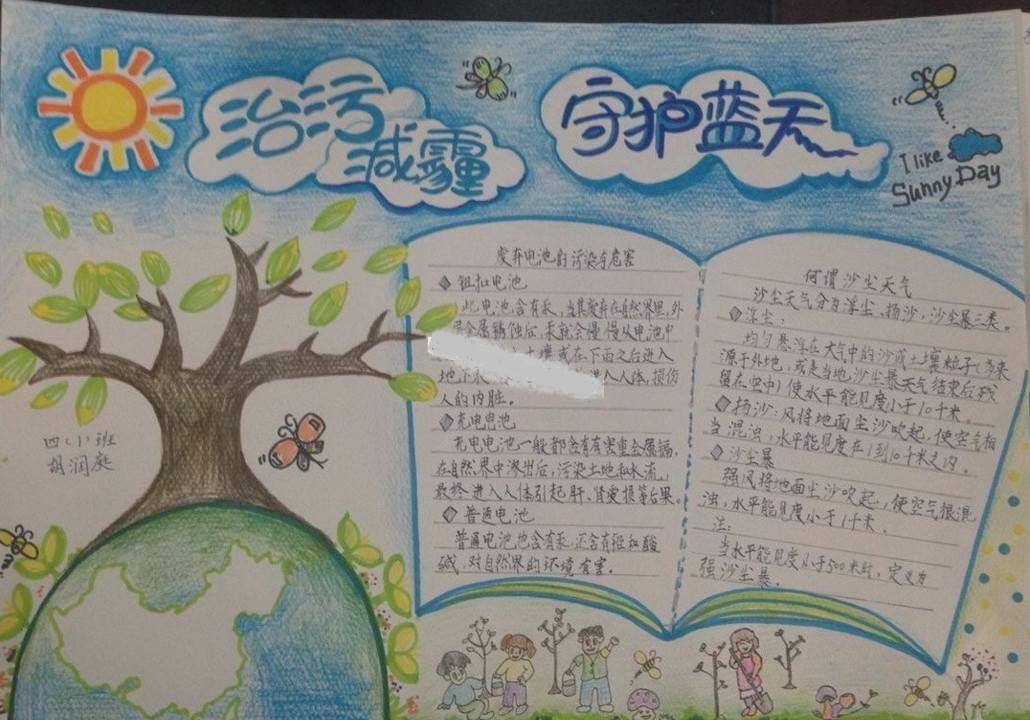 治污
减霾
守护蓝天
I like
Sunny Day
四(1)班
胡润庭
废弃电池的污染与危害
钮扣电池
此电池含有汞,当其废弃在自然界里,外
金属锈蚀后,汞就会慢慢从电池中
土壤或在下雨之后进入
地下水
进入人体,损伤
人的内脏。
充电电池
充电电池一般都含有有害重金属镉,
在自然界中渗出后,污染土地和水流,
最终进入人体引起肝、肾衰损等后果。
普通电池
普通电池也含有汞,还含有铅和酸
碱,对自然界的环境有害。
何谓沙尘天气
沙尘天气分为浮尘、扬沙,沙尘暴三类。
浮尘:
均匀悬浮在大气中的沙或土壤粒子(多来
源于外地,或是当地沙尘暴天气结束后残
留在空中)使水平能见度小于10千米。
扬沙:风将地面尘沙吹起,使空气相
当混浊,水平能见度在1到10千米之内。
沙尘暴
强风将地面尘沙吹起,使空气很混
浊,水平能见度小于1千米。
注:
当水平能见度小于500米时,定义为
强沙尘暴。